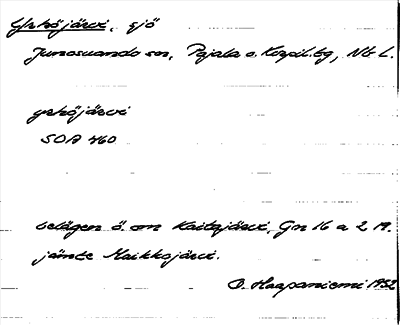 Yrhöjärvi, sjö
Junosuando sn, Pajala o. Korpil. tg, Nb L.
yrhöjärvi
SOA 460
belägen ö. om Kaitajärvi, Gn 16 a 2 19.
jämte Maikkojärvi.
O. Haapaniemi 1952